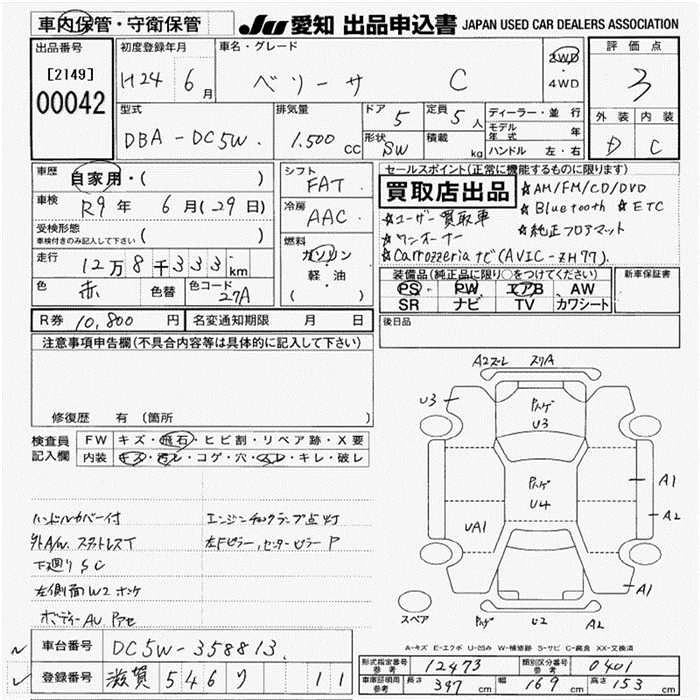 車内保管・守衛保管
JU 愛知 出品申込書 JAPAN USED CAR DEALERS ASSOCIATION
出品番号
[2149]
00042
初度登録年月
H24 6月
車名・グレード
ベリーサ C
2WD
・4WD
評価点
3
外装 内装
D C
型式
DBA-DC5W
排気量
1.500 cc
ドア 5
定員 5人
形状 SW
積載 kg
ディーラー・並行
モデル年式 年
ハンドル 左・右
車歴
自家用・( )
車検
R9年 6月(29日)
受検形態
車検付きのみ記入して下さい ( )
走行
12万8千333km
色 赤 色替 色コード 27A
シフト
FAT
冷房
AAC
燃料
ガソリン
軽・油
( )
セールスポイント(正常に機能するものに限る)
買取店出品
☆AM/FM/CD/DVD
☆Bluetooth ☆ETC
☆ユーザー買取車
☆純正フロアマット
☆ワンオーナー
☆Carrozzeriaナビ(AVIC-ZH77).
装備品(純正品に限り○をつけてください)
PS PW エアB AW
SR ナビ TV カワシート
新車保証書
R券 10,800円
名変通知期限 月 日
後日品
注意事項申告欄(不具合内容等は具体的に記入して下さい)
修復歴 有(箇所
検査員
記入欄
FW キズ・飛石・ヒビ割・リペア跡・X要
内装 キズ・汚レ・コゲ・穴・スレ・キレ・破レ
ハンドルカバー付
エンジンチェックランプ点灯
外A/W、スタットレスT
左Fピラー、センターピラー P
下廻りSC
左側面W2
ボディーAU
A2 スリA
U3
U3
U4
UA1
A1
A2
A1
U2 A2
スペア
A-キズ E-エクボ U-凹み W-補修跡 S-サビ C-腐食 XX-交換済
車台番号 DC5W-358813
登録番号 滋賀 546 り 11
形式指定番号
参考
12473
類別区分番号
参考
0401
車庫証明用
参考
長さ 397cm
幅 169cm
高さ 153cm